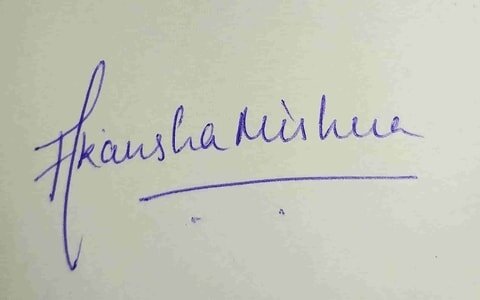 Akansha Mishra